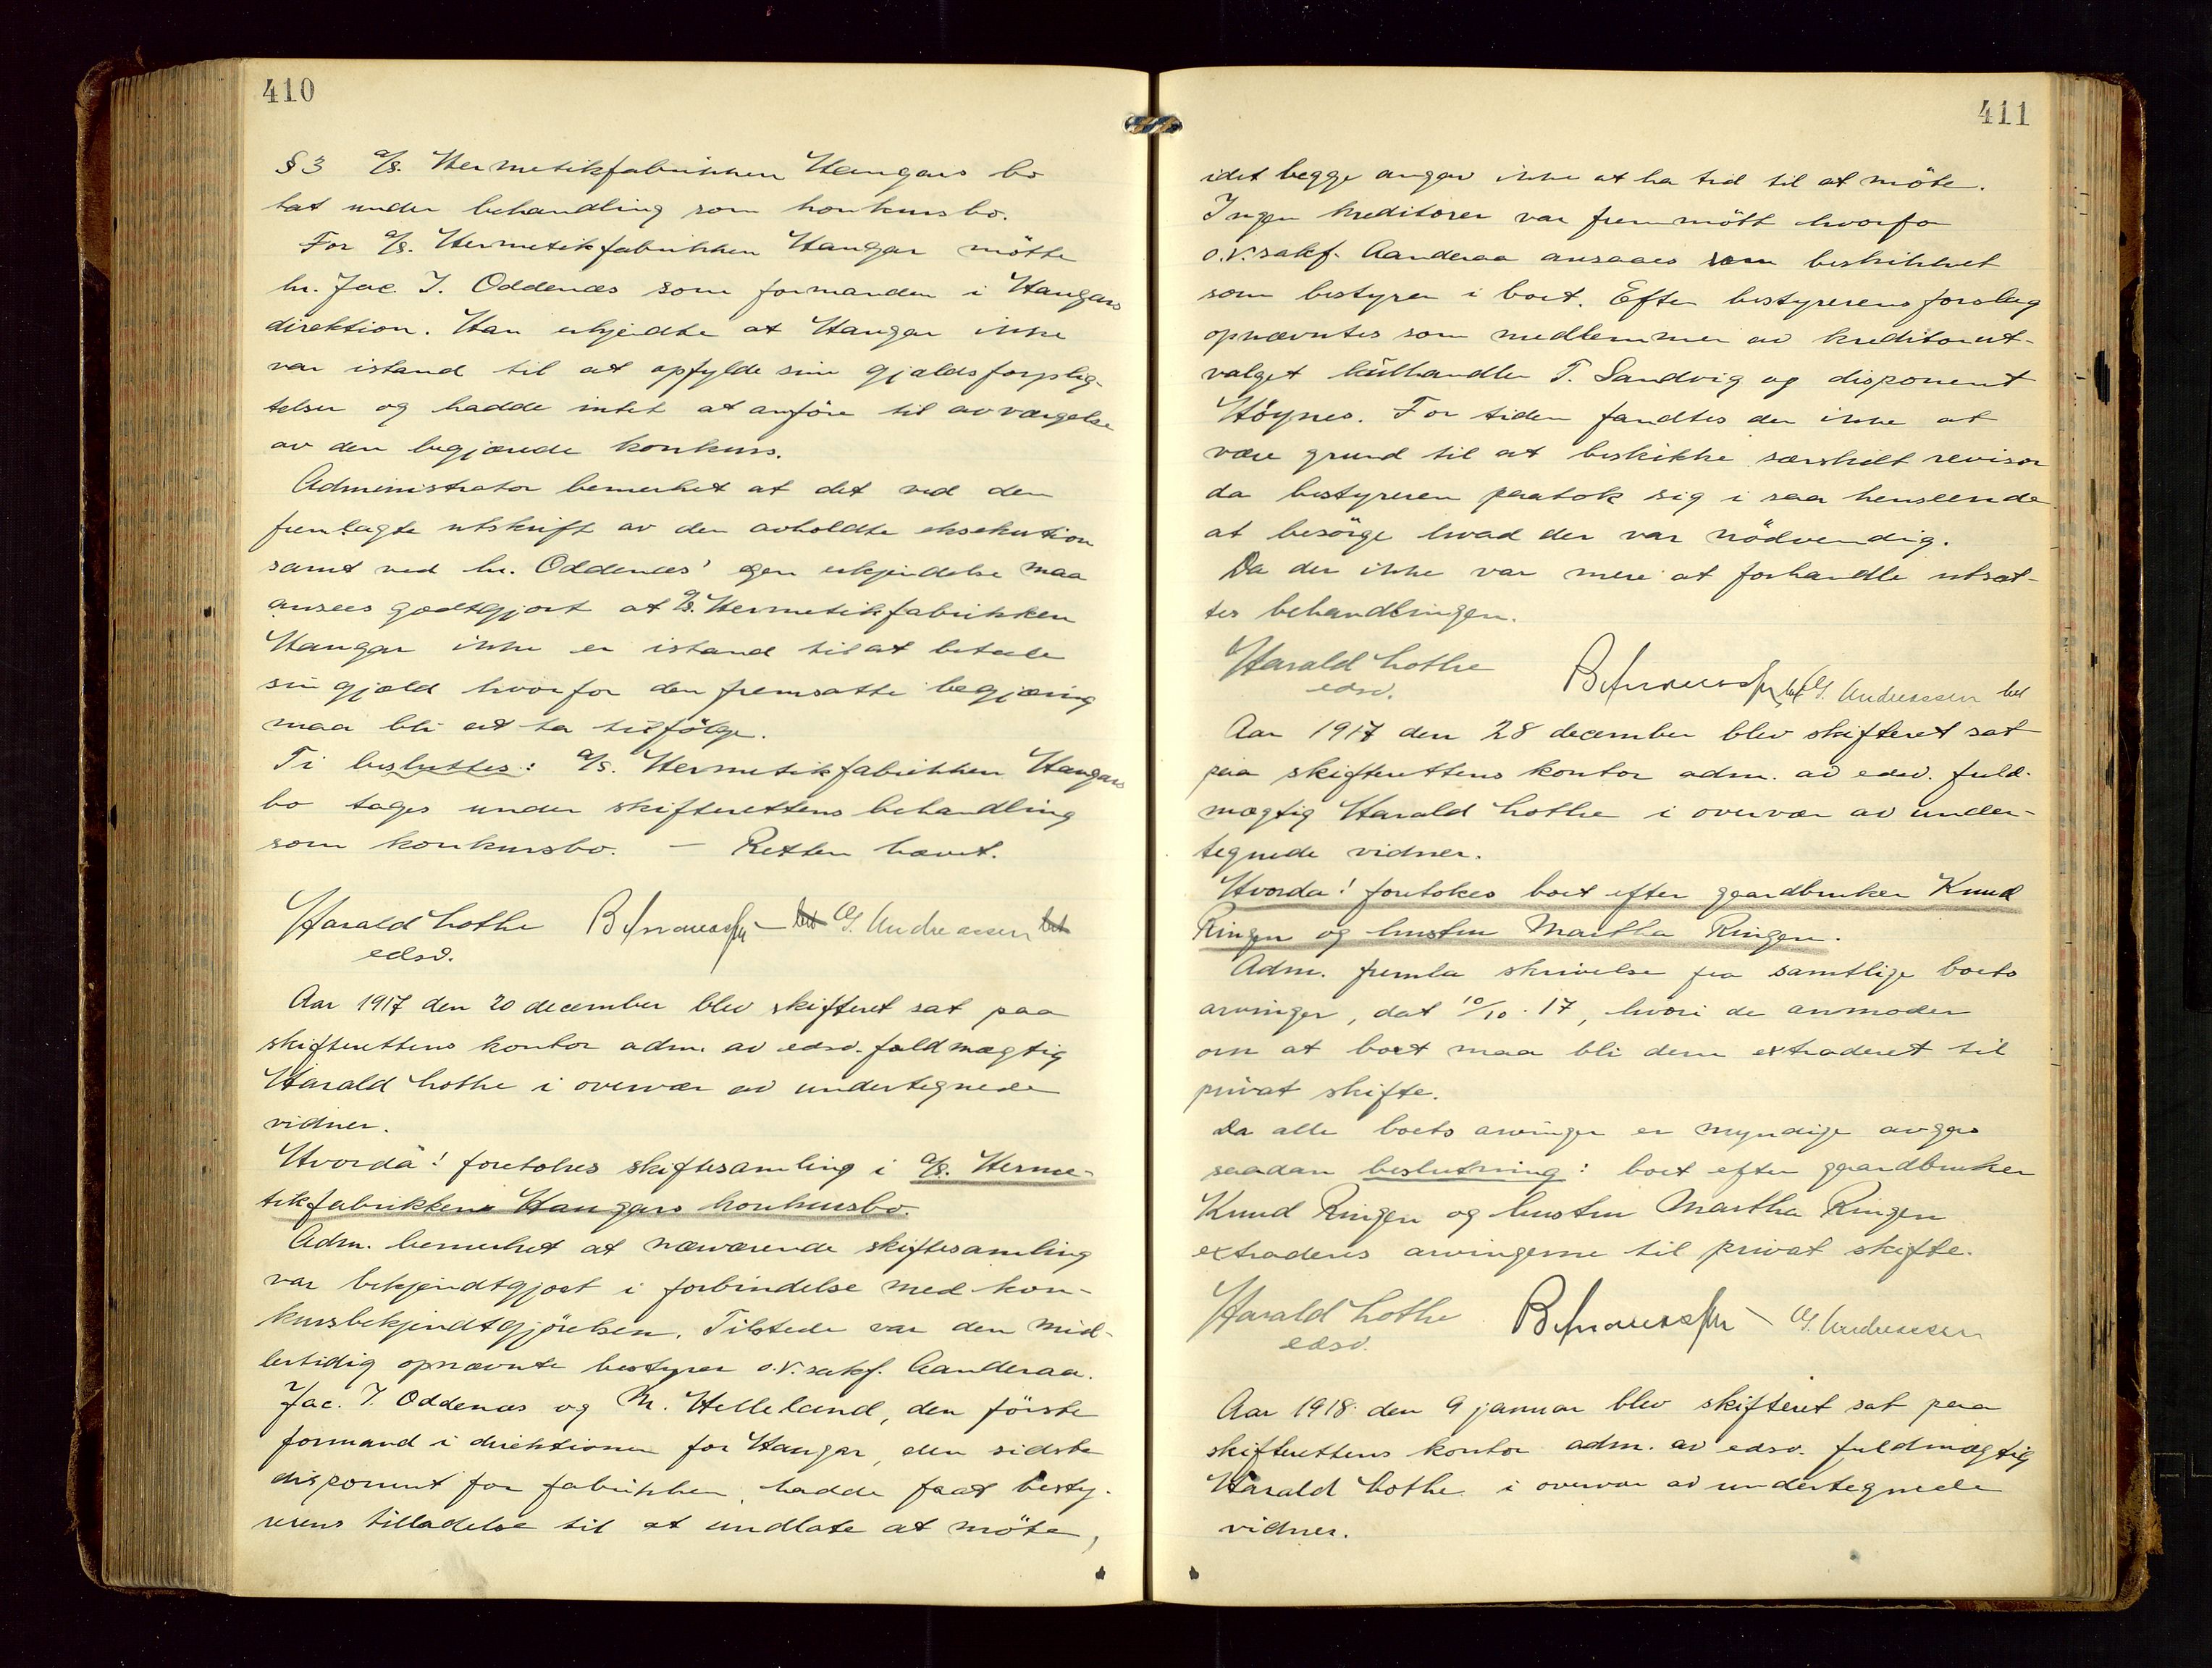 410
§ 3 a/s. Hermetikfabrikken Haugars bo
tat under behandling som konkursbo.
For a/s. Hermetikfabrikken Haugar mötte
hr. Jac. I. Oddenæs som formanden i Haugars
direktion. Han erkjendte at Haugar ikke
var istand til at opfylde sine gjældsforplig-
telser og hadde intet at anföre til avværgelse
av den begjærede konkurs.
Administrator bemerket at det ved den
fremlagte utskrift av den avholdte eksekution
samt ved hr. Oddenæs' egen erkjendelse maa
ansees godtgjort at a/s. Hermetikfabrikken
Haugar ikke er istand til at betale
sin gjæld hvorfor den fremsatte begjæring
maa bli at ta tilfölge.
Ti besluttes: a/s. Hermetikfabrikken Haugars
bo tages under skifterettens behandling
som konkursbo. — Retten hævet.
Harald Lothe G. Andreassen
edsv.
Aar 1917 den 20 december blev skifteret sat paa
skifterettens kontor adm. av edsv. fuldmægtig
Harald Lothe i overvær av undertegnede
vidner.
Hvorda! foretokes skiftesamling i a/s. Herme-
tikfabrikken Haugars konkursbo.
Adm. bemerket at nærværende skiftesamling
var bekjendtgjort i forbindelse med kon-
kursbekjendtgjörelsen. Tilstede var den mid-
lertidig opnævnte bestyrer o.r.sakf. Aanderaa.
Jac. I. Oddenæs og M. Helleland, den förste
formand i direktionen for Haugar, den sidste
disponent for fabrikken, hadde faat besty-
rerens tilladelse til at undlate at möte,
411
idet begge angav ikke at ha tid til at möte.
Ingen kreditorer var fremmött hvorfor
o.r.sakf. Aanderaa ansaaes som beskikket
som bestyrer i boet. Efter bestyrerens forslag
opnævntes som medlemmer av kreditorut-
valget kulhandler T. Sandvig og disponent
Höynes. For tiden fandtes der ikke at
være grund til at beskikke særskilt revisor
da bestyreren paatok sig i saa henseende
at besörge hvad der var nödvendig.
Da der ikke var mere at forhandle utsat-
tes behandlingen.
Harald Lothe G. Andreassen
edsv.
Aar 1917 den 28 december blev skifteret sat
paa skifterettens kontor adm. av edsv. fuld-
mægtig Harald Lothe i overvær av under-
tegnede vidner.
Hvorda! foretokes boet efter gaardbruker Knud
Ringen og hustru Martha Ringen.
Adm. fremla skrivelse fra samtlige boets
arvinger, dat 10/10.17, hvori de anmoder
om at boet maa bli dem extraderet til
privat skifte.
Da alle boets arvinger er myndige avgaes
saadan beslutning: boet efter gaardbruker
Knud Ringen og hustru Martha Ringen
extraderes arvingerne til privat skifte.
Harald Lothe G. Andreassen
edsv.
Aar 1918 den 9 januar blev skifteret sat paa
skifterettens kontor adm. av edsv. fuldmægtig
Harald Lothe i overvær av undertegnede
vidner.